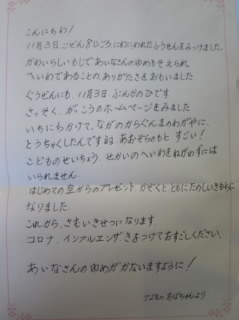 こんにちわ!
11月3日、ごぜん8じごろ、にわにわれたふうせんをみつけました。
かわいらしいもじであいなさんのゆめもそえられ
へいわであることの、ありがたさをおもいました
ぐうぜんにも、11月3日 ぶんかのひです
さっそく、がっこうのホームページをみました
いちにちかけて、ながのからぐんまのわがやに、
とうちゃくしたんですね あおぞらのもと すごい!
こどものせいちょう、せかいのへいわをねがわずには
いられません
はじめての空からのプレゼント かぞくとともにたのしいきもちに
なりました
これから、さむいきせつになります
コロナ、インフルエンザ きをつけておすごしください。
あいなさんのゆめがかないますように!
おばちゃんより